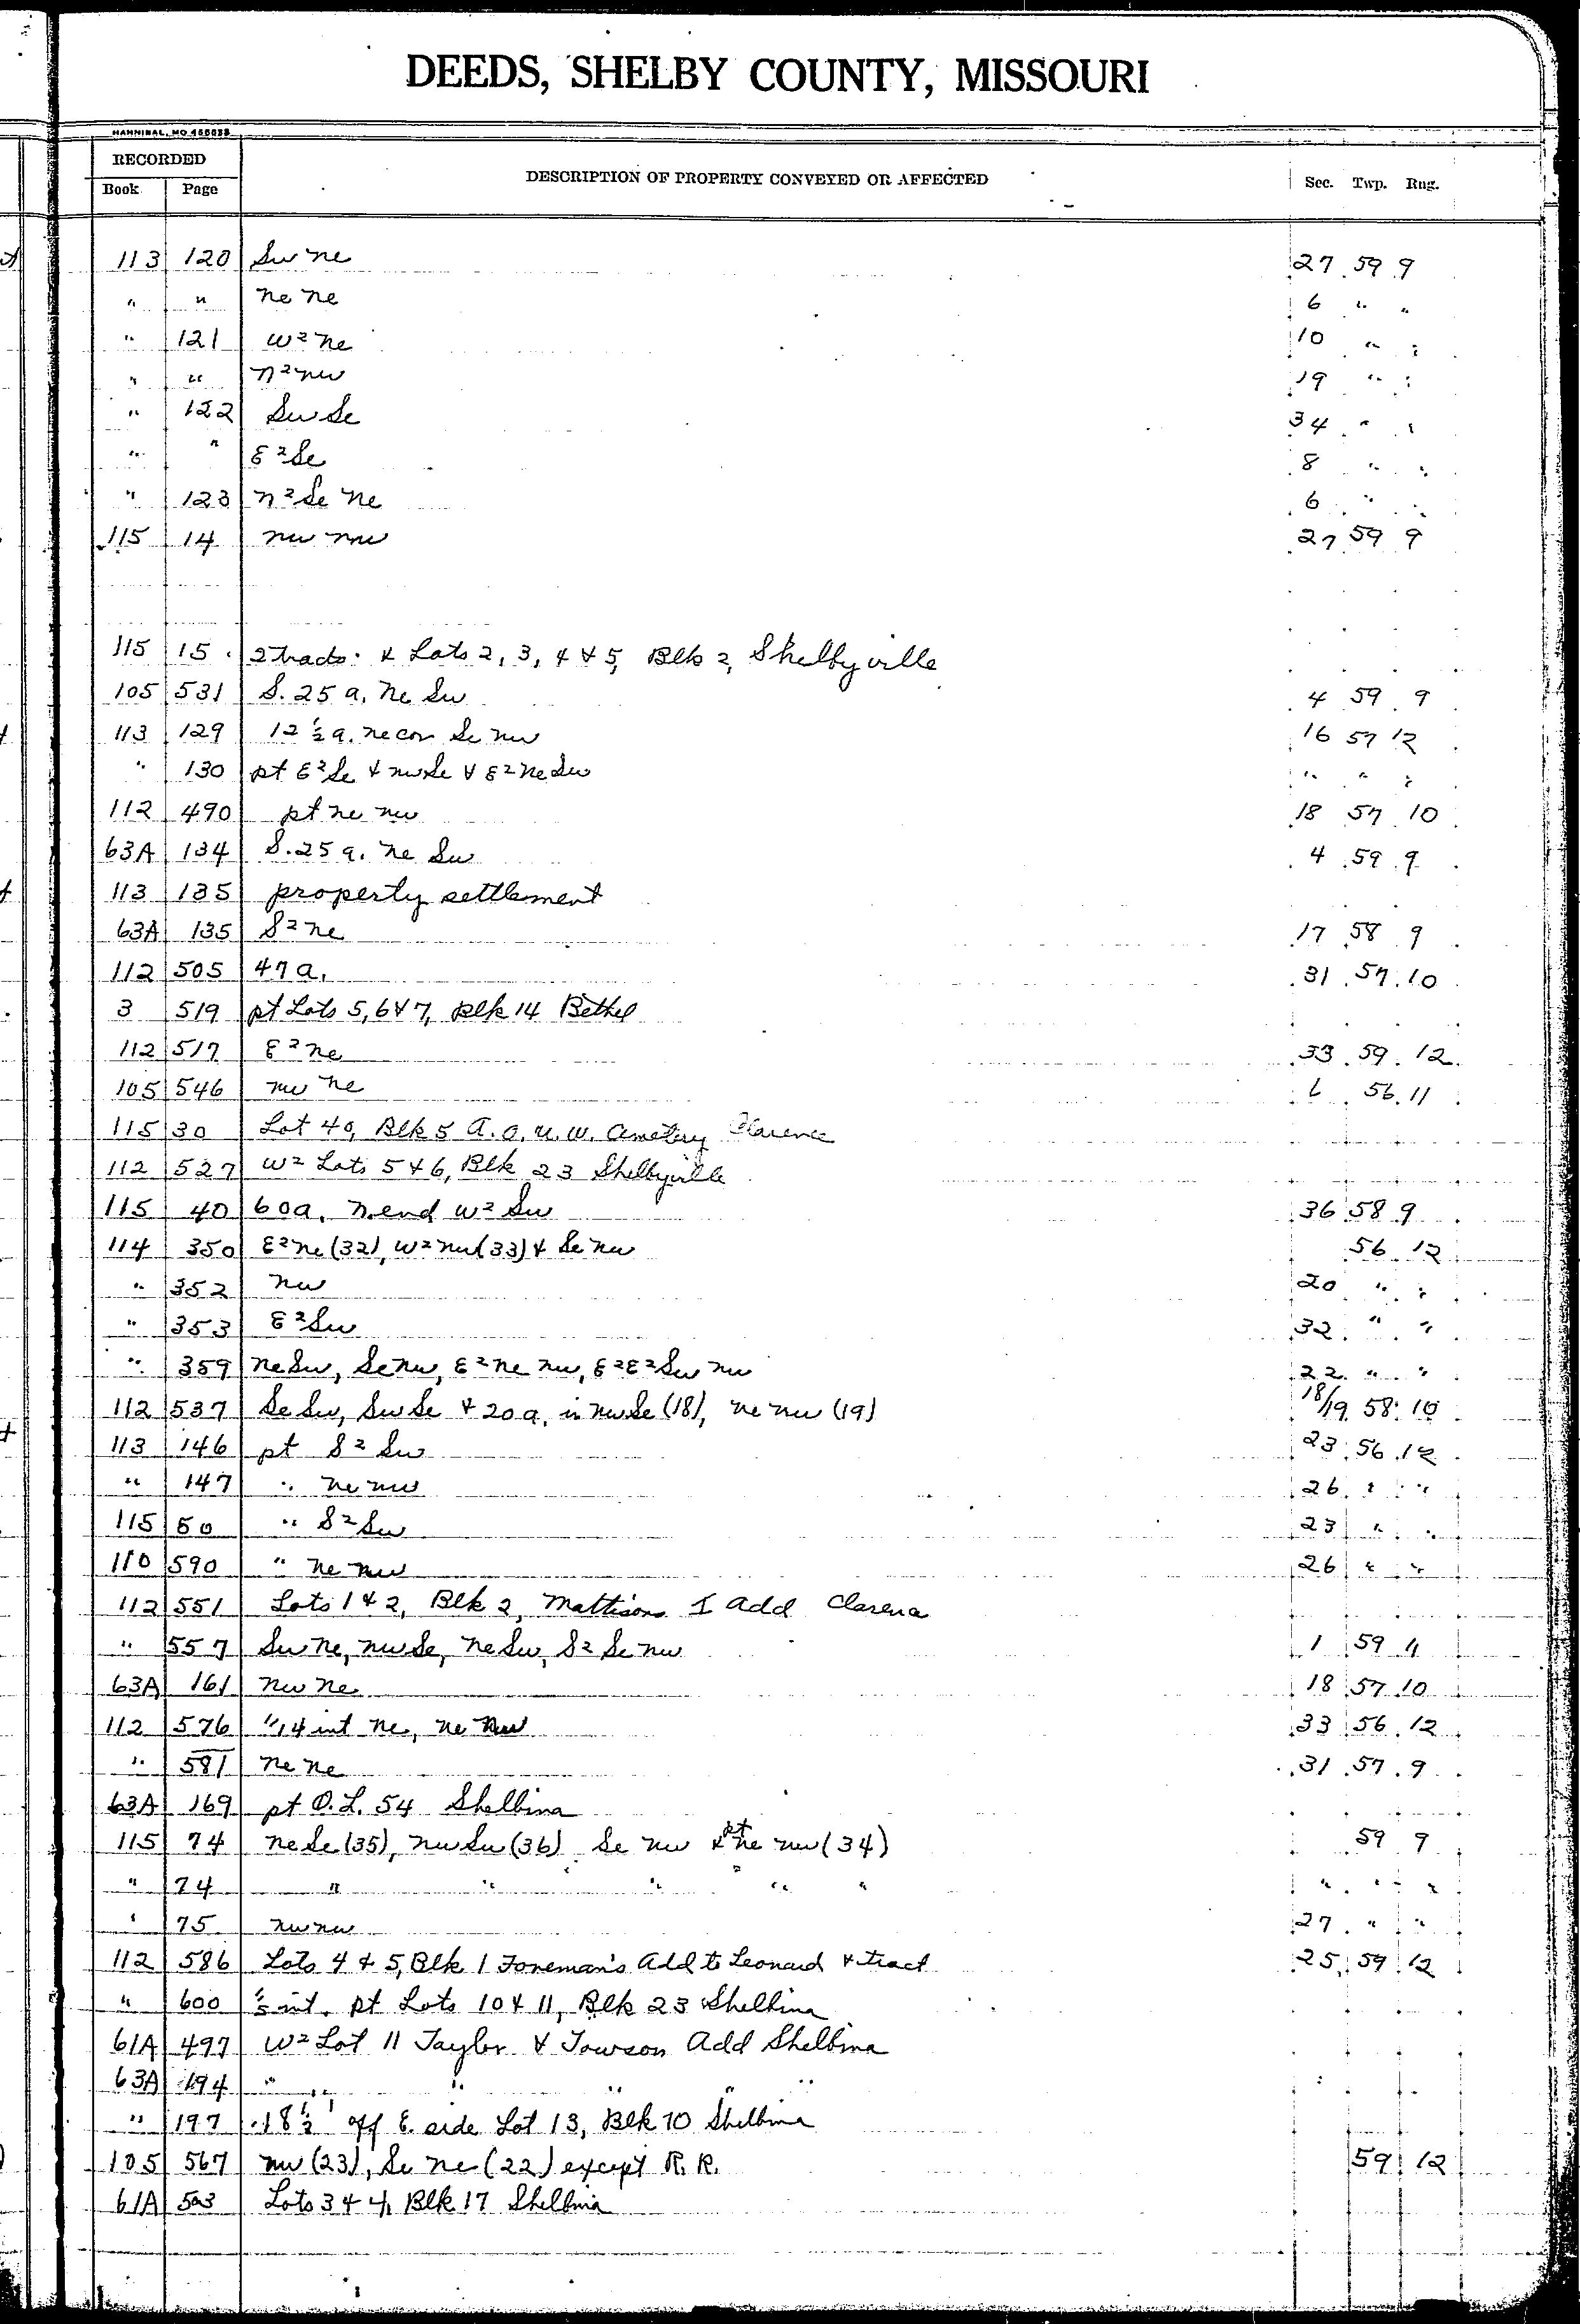 DEEDS, SHELBY COUNTY, MISSOURI
HANNIBAL, MO 456033
RECORDED
Book Page DESCRIPTION OF PROPERTY CONVEYED OR AFFECTED Sec. Twp. Rng.
113 120 Sw ne 27 59 9
" " ne ne 6 " "
" 121 W² ne 10 " "
" " N² nw 19 " "
" 122 Sw Se 34 " "
" " E² Se 8 " "
" 123 N² Se ne 6 " "
115 14 nw nw 27 59 9
115 15 2 tracts & Lots 2, 3, 4 & 5, Blk 2, Shelbyville
105 531 S. 25 a. Ne Sw 4 59 9
113 129 12 1/2 a. ne cor Se nw 16 57 12
" 130 pt E² Se & nw Se & E² ne Sw " " "
112 490 pt ne nw 18 57 10
63A 134 S. 25 a. ne Sw 4 59 9
113 135 property settlement
63A 135 S² ne 17 58 9
112 505 47 a. 31 57 10
3 519 pt Lots 5, 6 & 7, Blk 14 Bethel
112 517 E² ne 33 59 12
105 546 nw ne 6 56 11
115 30 Lot 40, Blk 5 A. O. U. W. Cemetery Clarence
112 527 W² Lots 5 & 6, Blk 23 Shelbyville
115 40 60 a. N. end W² Sw 36 58 9
114 350 E² ne (32), W² nw (33) & Se nw 56 12
" 352 nw 20 " "
" 353 E² Sw 32 " "
" 359 ne Sw, Se nw, E² ne nw, E² E² Sw nw 22 " "
112 537 Se Sw, Sw Se & 20 a. in nw Se (18), ne nw (19) 18/19 58 10
113 146 pt S² Sw 23 56 12
" 147 " ne nw 26 " "
115 50 " S² Sw 23 " "
110 590 " ne nw 26 " "
112 551 Lots 1 & 2, Blk 2, Mattisons I Add Clarence
" 557 Sw ne, nw Se, ne Sw, S² Se nw 1 59 11
63A 161 nw ne 18 57 10
112 576 1/14 int ne, ne nw 33 56 12
" 581 ne ne 31 57 9
63A 169 pt O. L. 54 Shelbina
115 74 ne Se (35), nw Sw (36) Se nw & pt ne nw (34) 59 9
" 74 " " " " " " " "
" 75 nw nw 27 " "
112 586 Lots 4 & 5, Blk 1 Foreman's Add to Leonard & tract 25 59 12
" 600 1/5 int. pt Lots 10 & 11, Blk 23 Shelbina
61A 497 W² Lot 11 Taylor & Towson Add Shelbina
63A 194 " " " " " "
" 197 18 1/2' off E. side Lot 13, Blk 70 Shelbina
105 567 nw (23), Se ne (22) except R. R. 59 12
61A 503 Lots 3 & 4, Blk 17 Shelbina